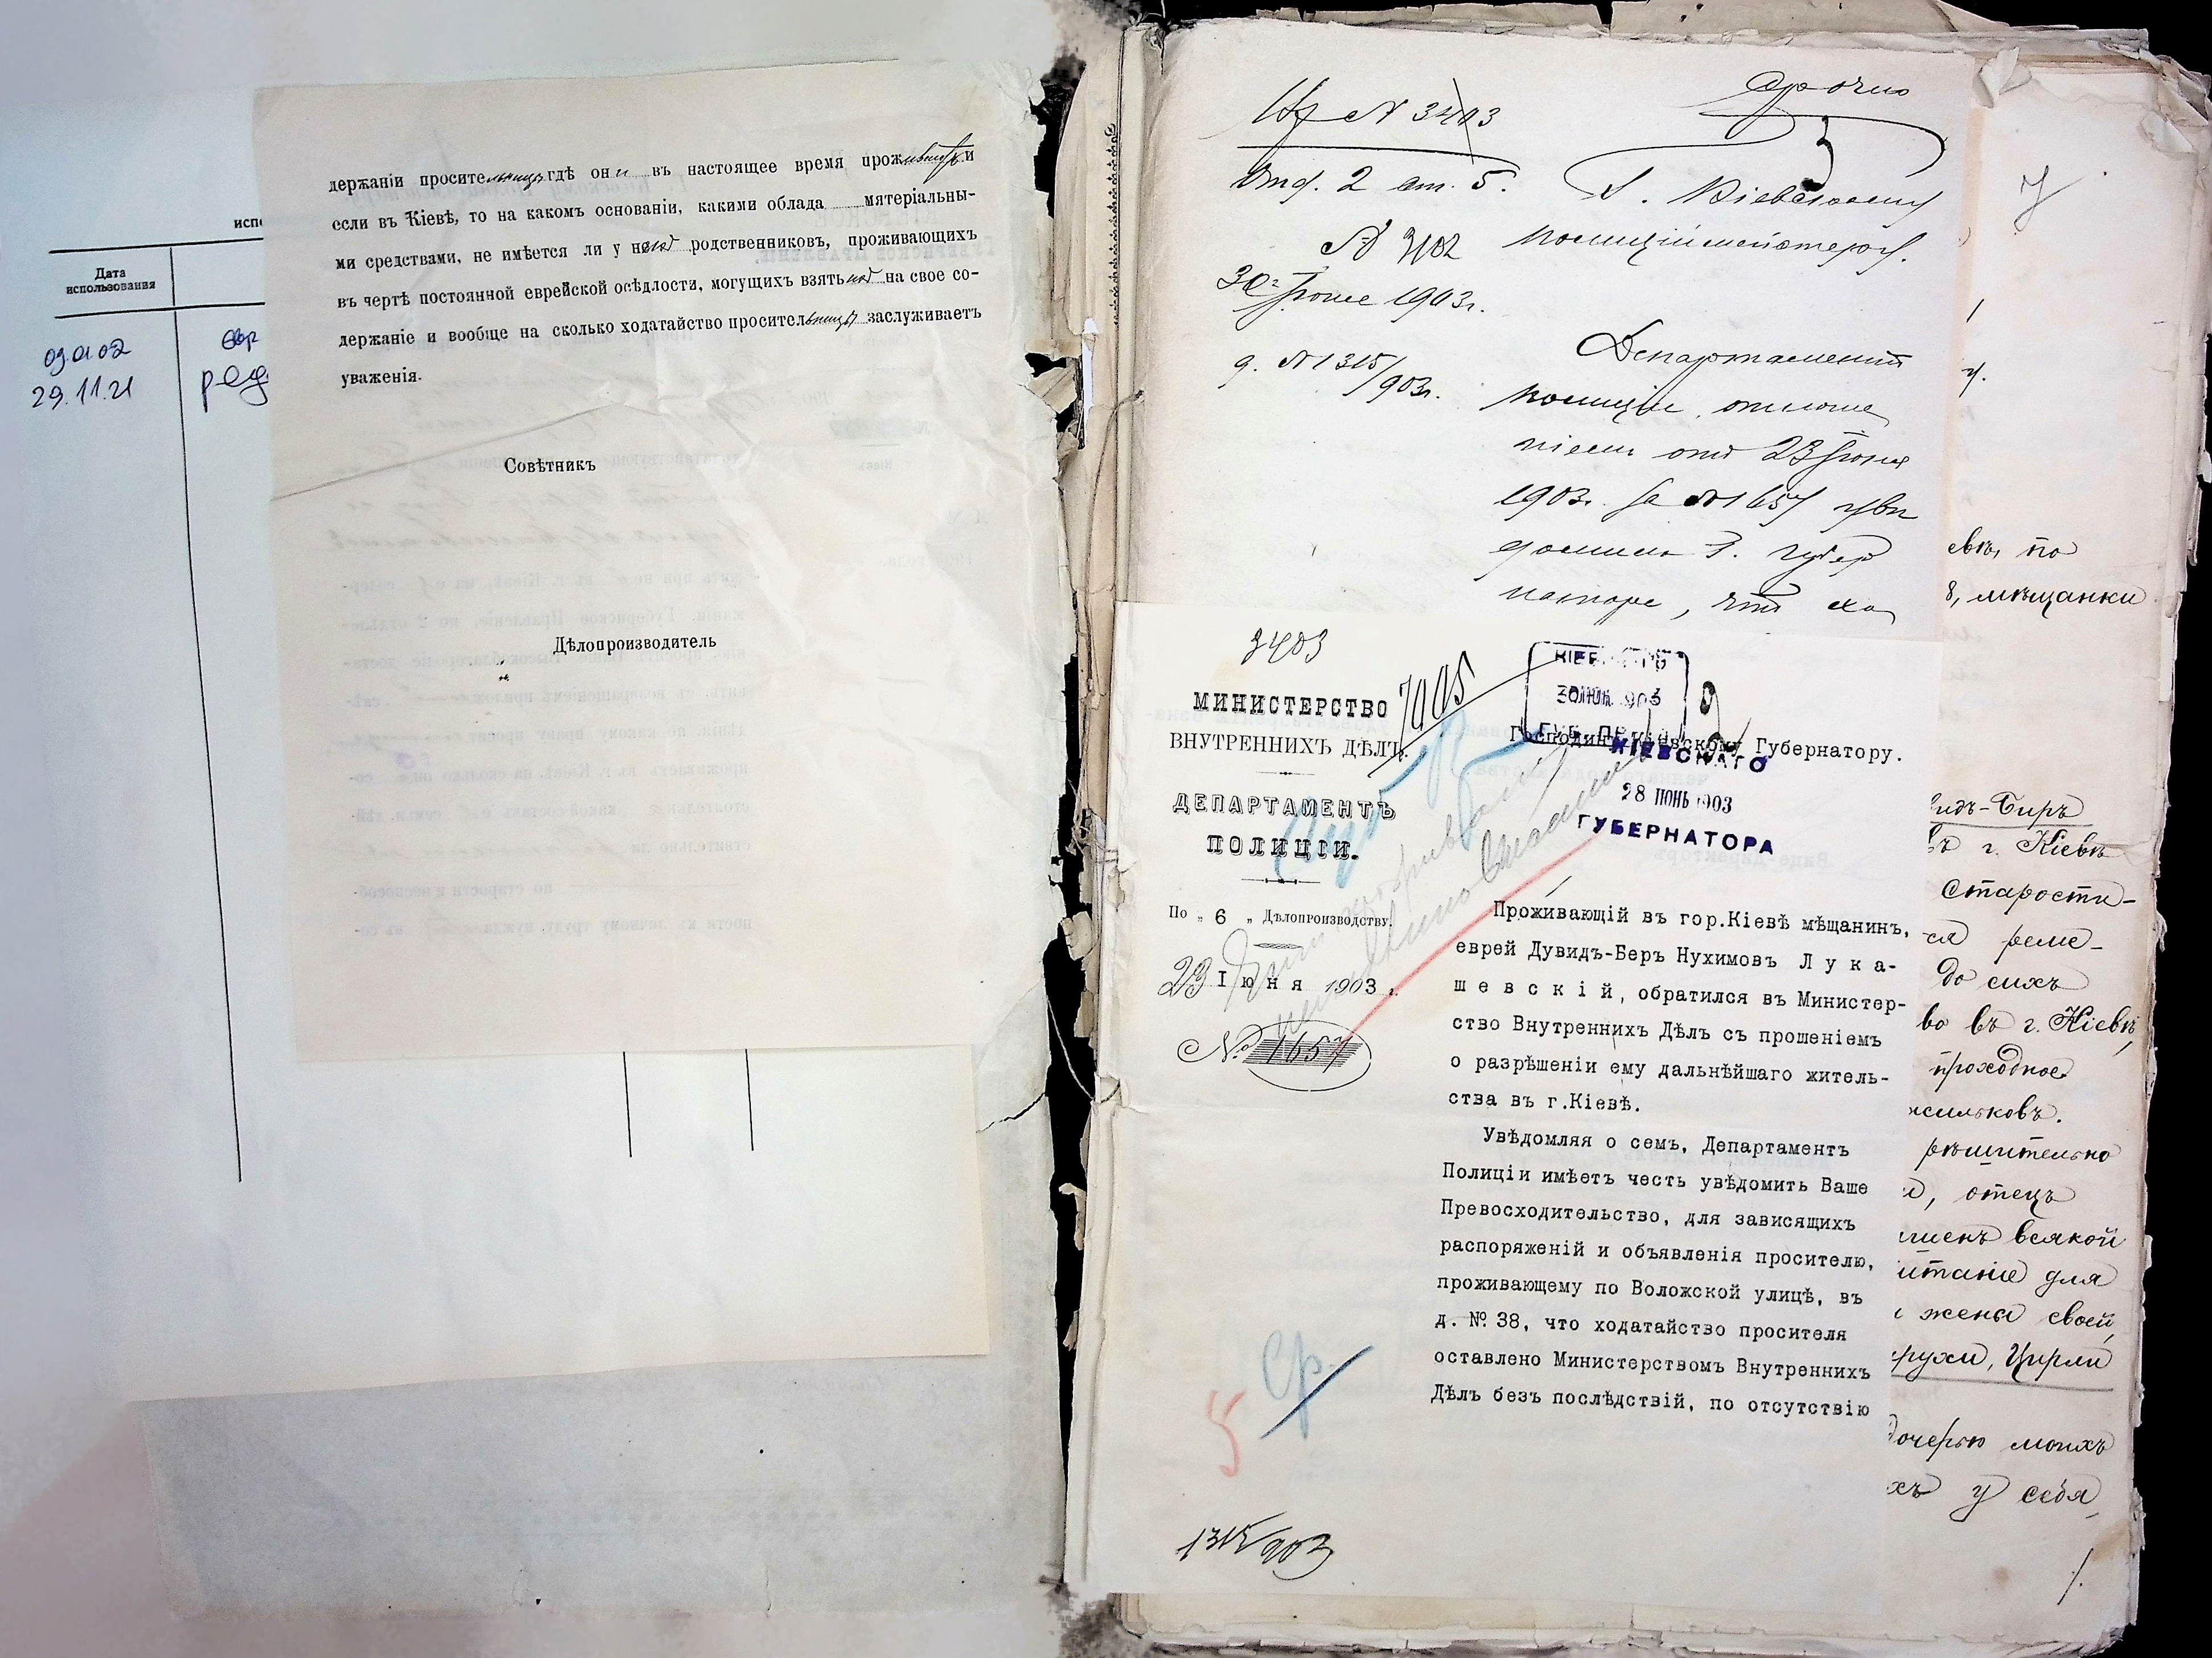 испо
Дата
использования
09.01.02
29.11.21
держаніи просительницы гдѣ они въ настоящее время проживаютъ и
если въ Кіевѣ, то на какомъ основаніи, какими облада матеріальны-
ми средствами, не имѣется ли у родственниковъ, проживающихъ
въ чертѣ постоянной еврейской осѣдлости, могущихъ взять на свое со-
держаніе и вообще на сколько ходатайство просительницы заслуживаетъ
уваженія.
Совѣтникъ
Дѣлопроизводитель
№ 3403
Срочно
Отд. 2 ст. 5.
Г. Кіевскому
№ 3102
Полиціймейстеру.
30 Іюня 1903 г.
д. № 1315/903 г.
Департаментъ
Полиціи, отноше
ніемъ отъ 23 Іюня
1903 г. за № 1657 увѣ
домилъ Г. Губер
натора, что хо
3403
7005
МИНИСТЕРСТВО
ВНУТРЕННИХЪ ДѢЛЪ.
ДЕПАРТАМЕНТЪ
ПОЛИЦІИ.
По „ 6 „ Дѣлопроизводству.
23 Іюня 1903 г.
№ 1657
ГУБ. ПР
Господину Кіевскому Губернатору.
КІЕВСКАГО
28 ІЮНЬ 1903
ГУБЕРНАТОРА
Проживающій въ гор.Кіевѣ мѣщанин,
еврей Дувидъ-Беръ Нухимовъ Лука-
шевскій, обратился въ Министер-
ство Внутреннихъ Дѣлъ съ прошеніемъ
о разрѣшеніи ему дальнѣйшаго житель-
ства въ г.Кіевѣ.
Увѣдомляя о семъ, Департаментъ
Полиціи имѣетъ честь увѣдомить Ваше
Превосходительство, для зависящихъ
распоряженій и объявленія просителю,
проживающему по Воложской улицѣ, въ
д. № 38, что ходатайство просителя
оставлено Министерствомъ Внутреннихъ
Дѣлъ безъ послѣдствій, по отсутствію
Ср.
5
1315/903
евѣ, по
8, мѣщанки
видъ-Биръ
въ г. Кіевѣ
старости-
ся реме-
до сихъ
во въ г. Кіевѣ,
проходное
рѣшительно
отецъ
всякой
итаніе для
жены своей,
рухи, Цирли
дочерью моихъ
хъ у себя,